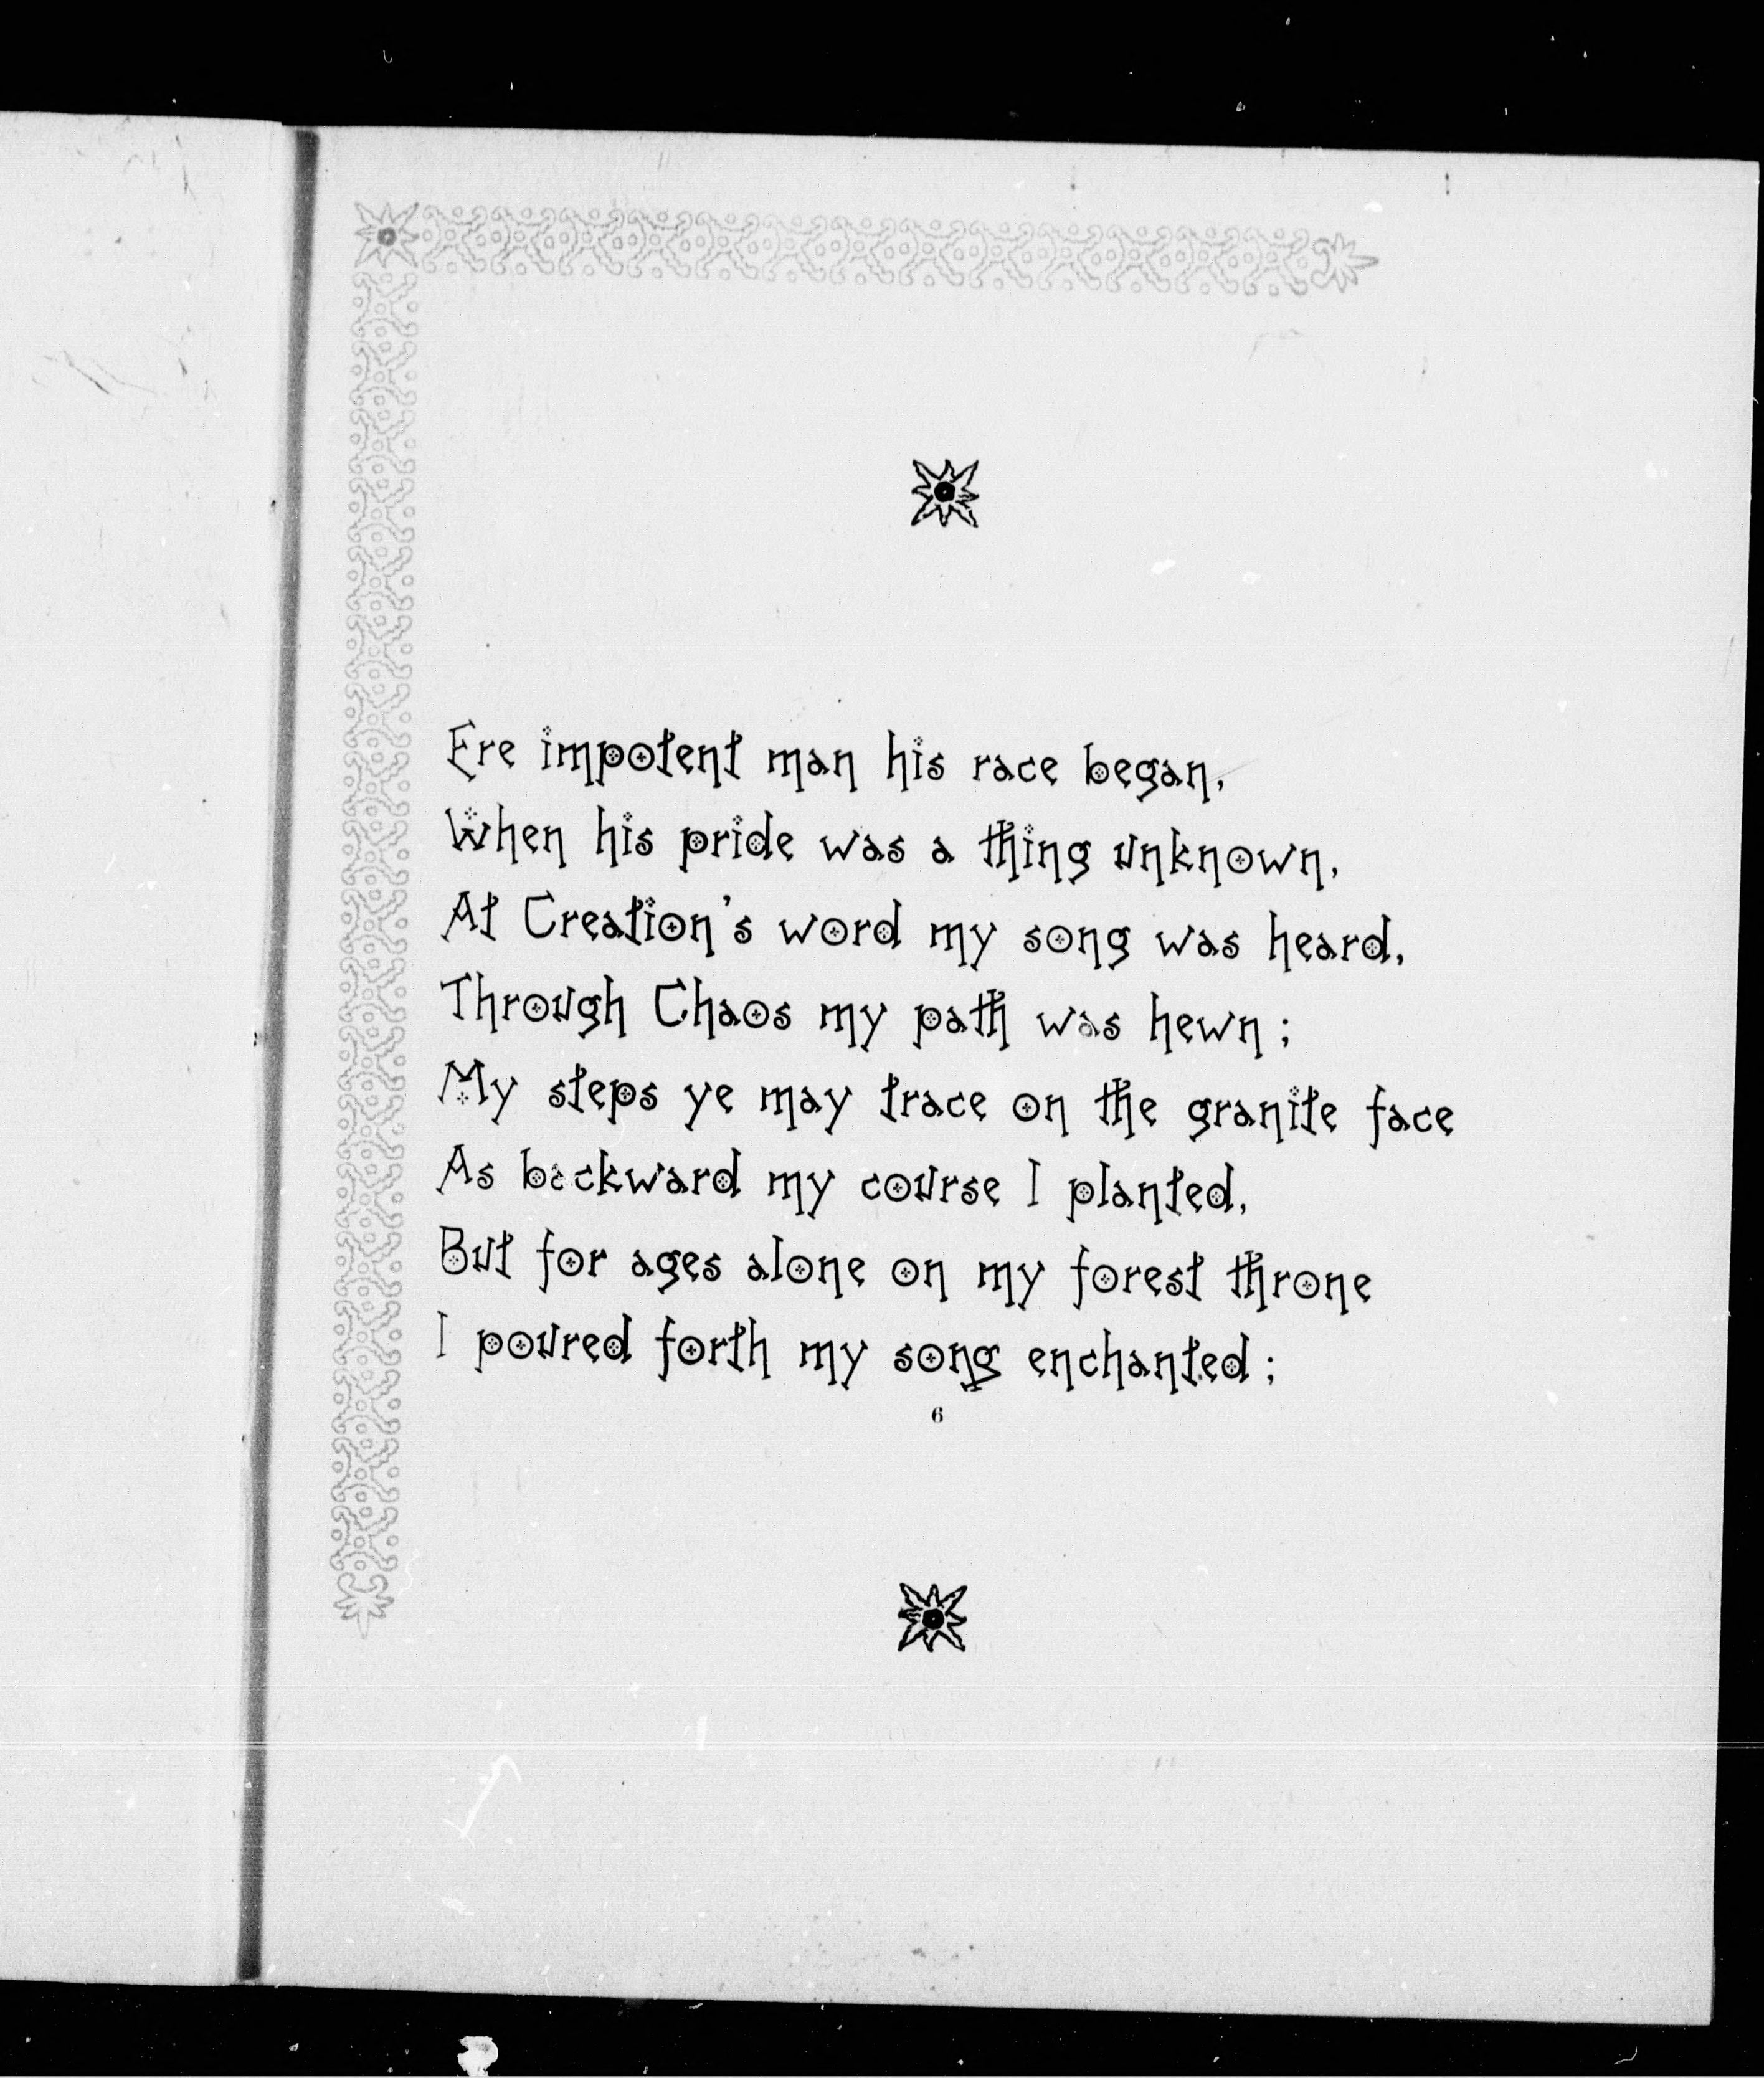 Ere impotent man his race began,
When his pride was a thing unknown,
At Creation's word my song was heard,
Through Chaos my path was hewn ;
My steps ye may trace on the granite face
As backward my course I planted,
But for ages alone on my forest throne
I poured forth my song enchanted ;
6